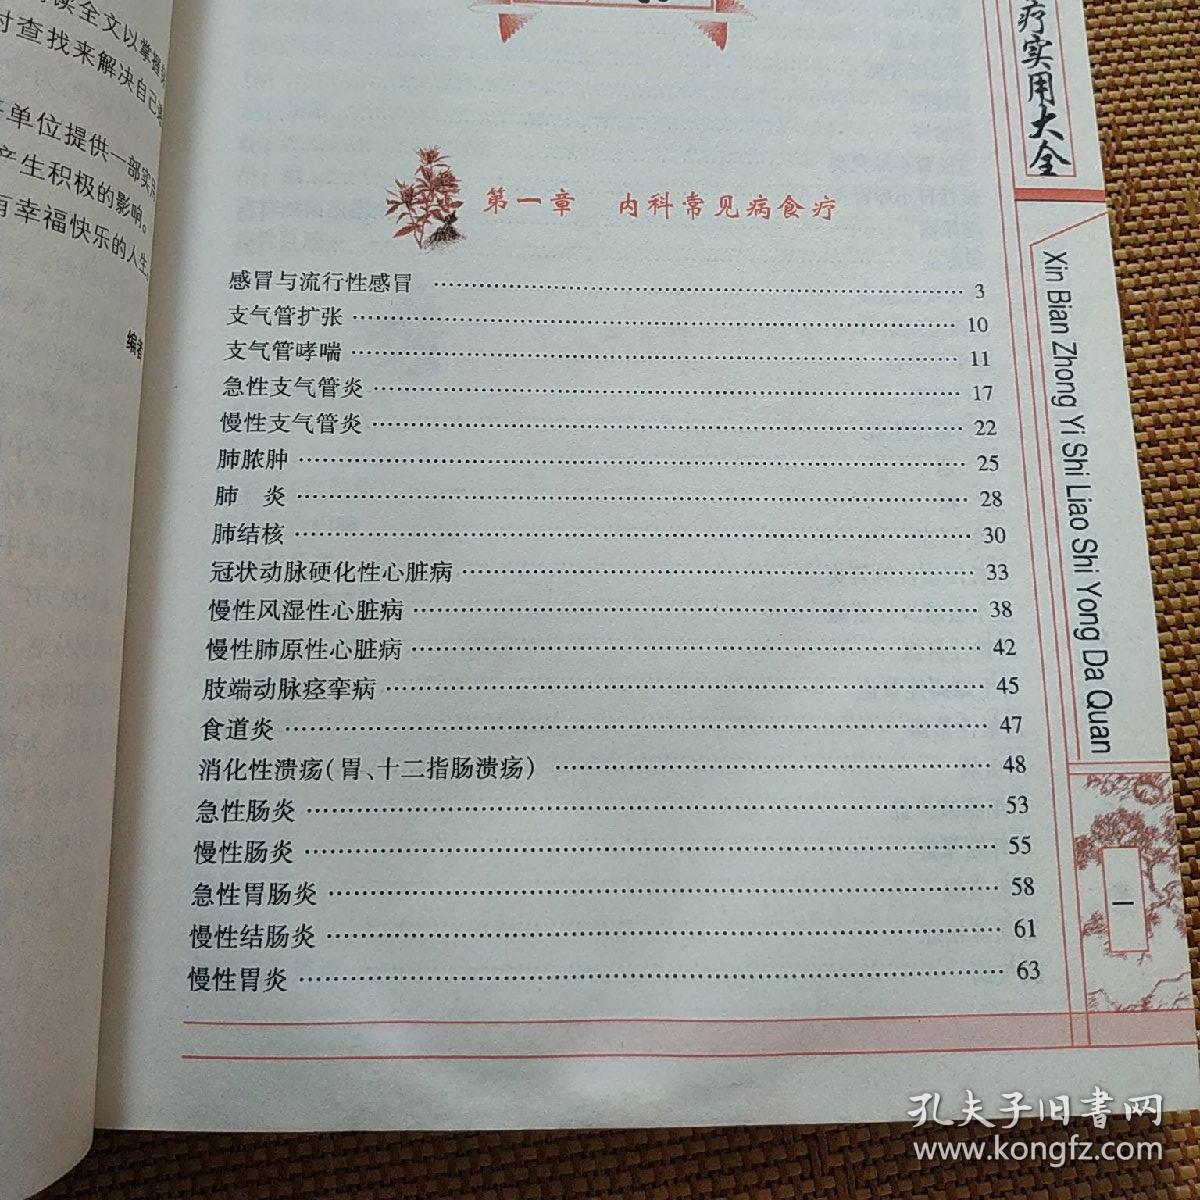 读全文以掌握
时查找来解决自己
单位提供一部实
产生积极的影响。
有幸福快乐的人生
编者
第一章 内科常见病食疗
感冒与流行性感冒 …… 3
支气管扩张 …… 10
支气管哮喘 …… 11
急性支气管炎 …… 17
慢性支气管炎 …… 22
肺脓肿 …… 25
肺 炎 …… 28
肺结核 …… 30
冠状动脉硬化性心脏病 …… 33
慢性风湿性心脏病 …… 38
慢性肺原性心脏病 …… 42
肢端动脉痉挛病 …… 45
食道炎 …… 47
消化性溃疡(胃、十二指肠溃疡) …… 48
急性肠炎 …… 53
慢性肠炎 …… 55
急性胃肠炎 …… 58
慢性结肠炎 …… 61
慢性胃炎 …… 63
疗实用大全
Xin Bian Zhong Yi Shi Liao Shi Yong Da Quan
一
孔夫子旧书网
www.kongfz.com